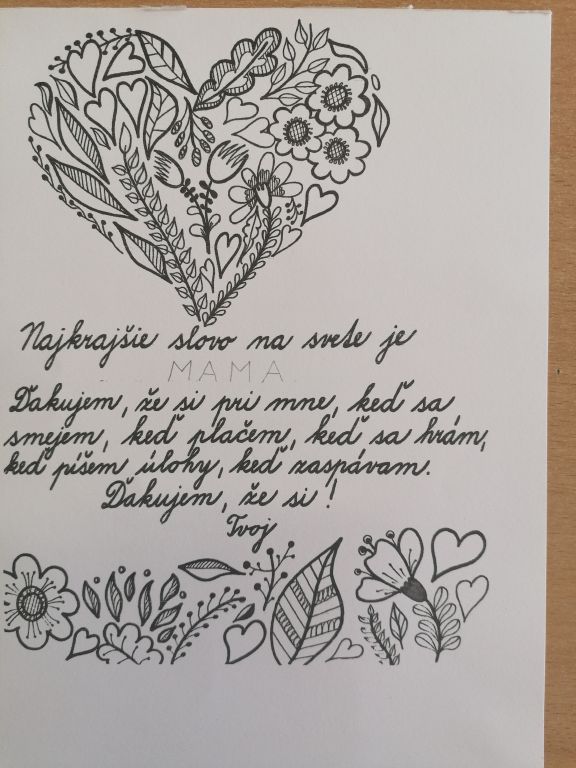 Najkrajšie slovo na svete je
MAMA
Ďakujem, že si pri mne, keď sa
smejem, keď plačem, keď sa hrám,
keď píšem úlohy, keď zaspávam.
Ďakujem, že si!
Tvoj